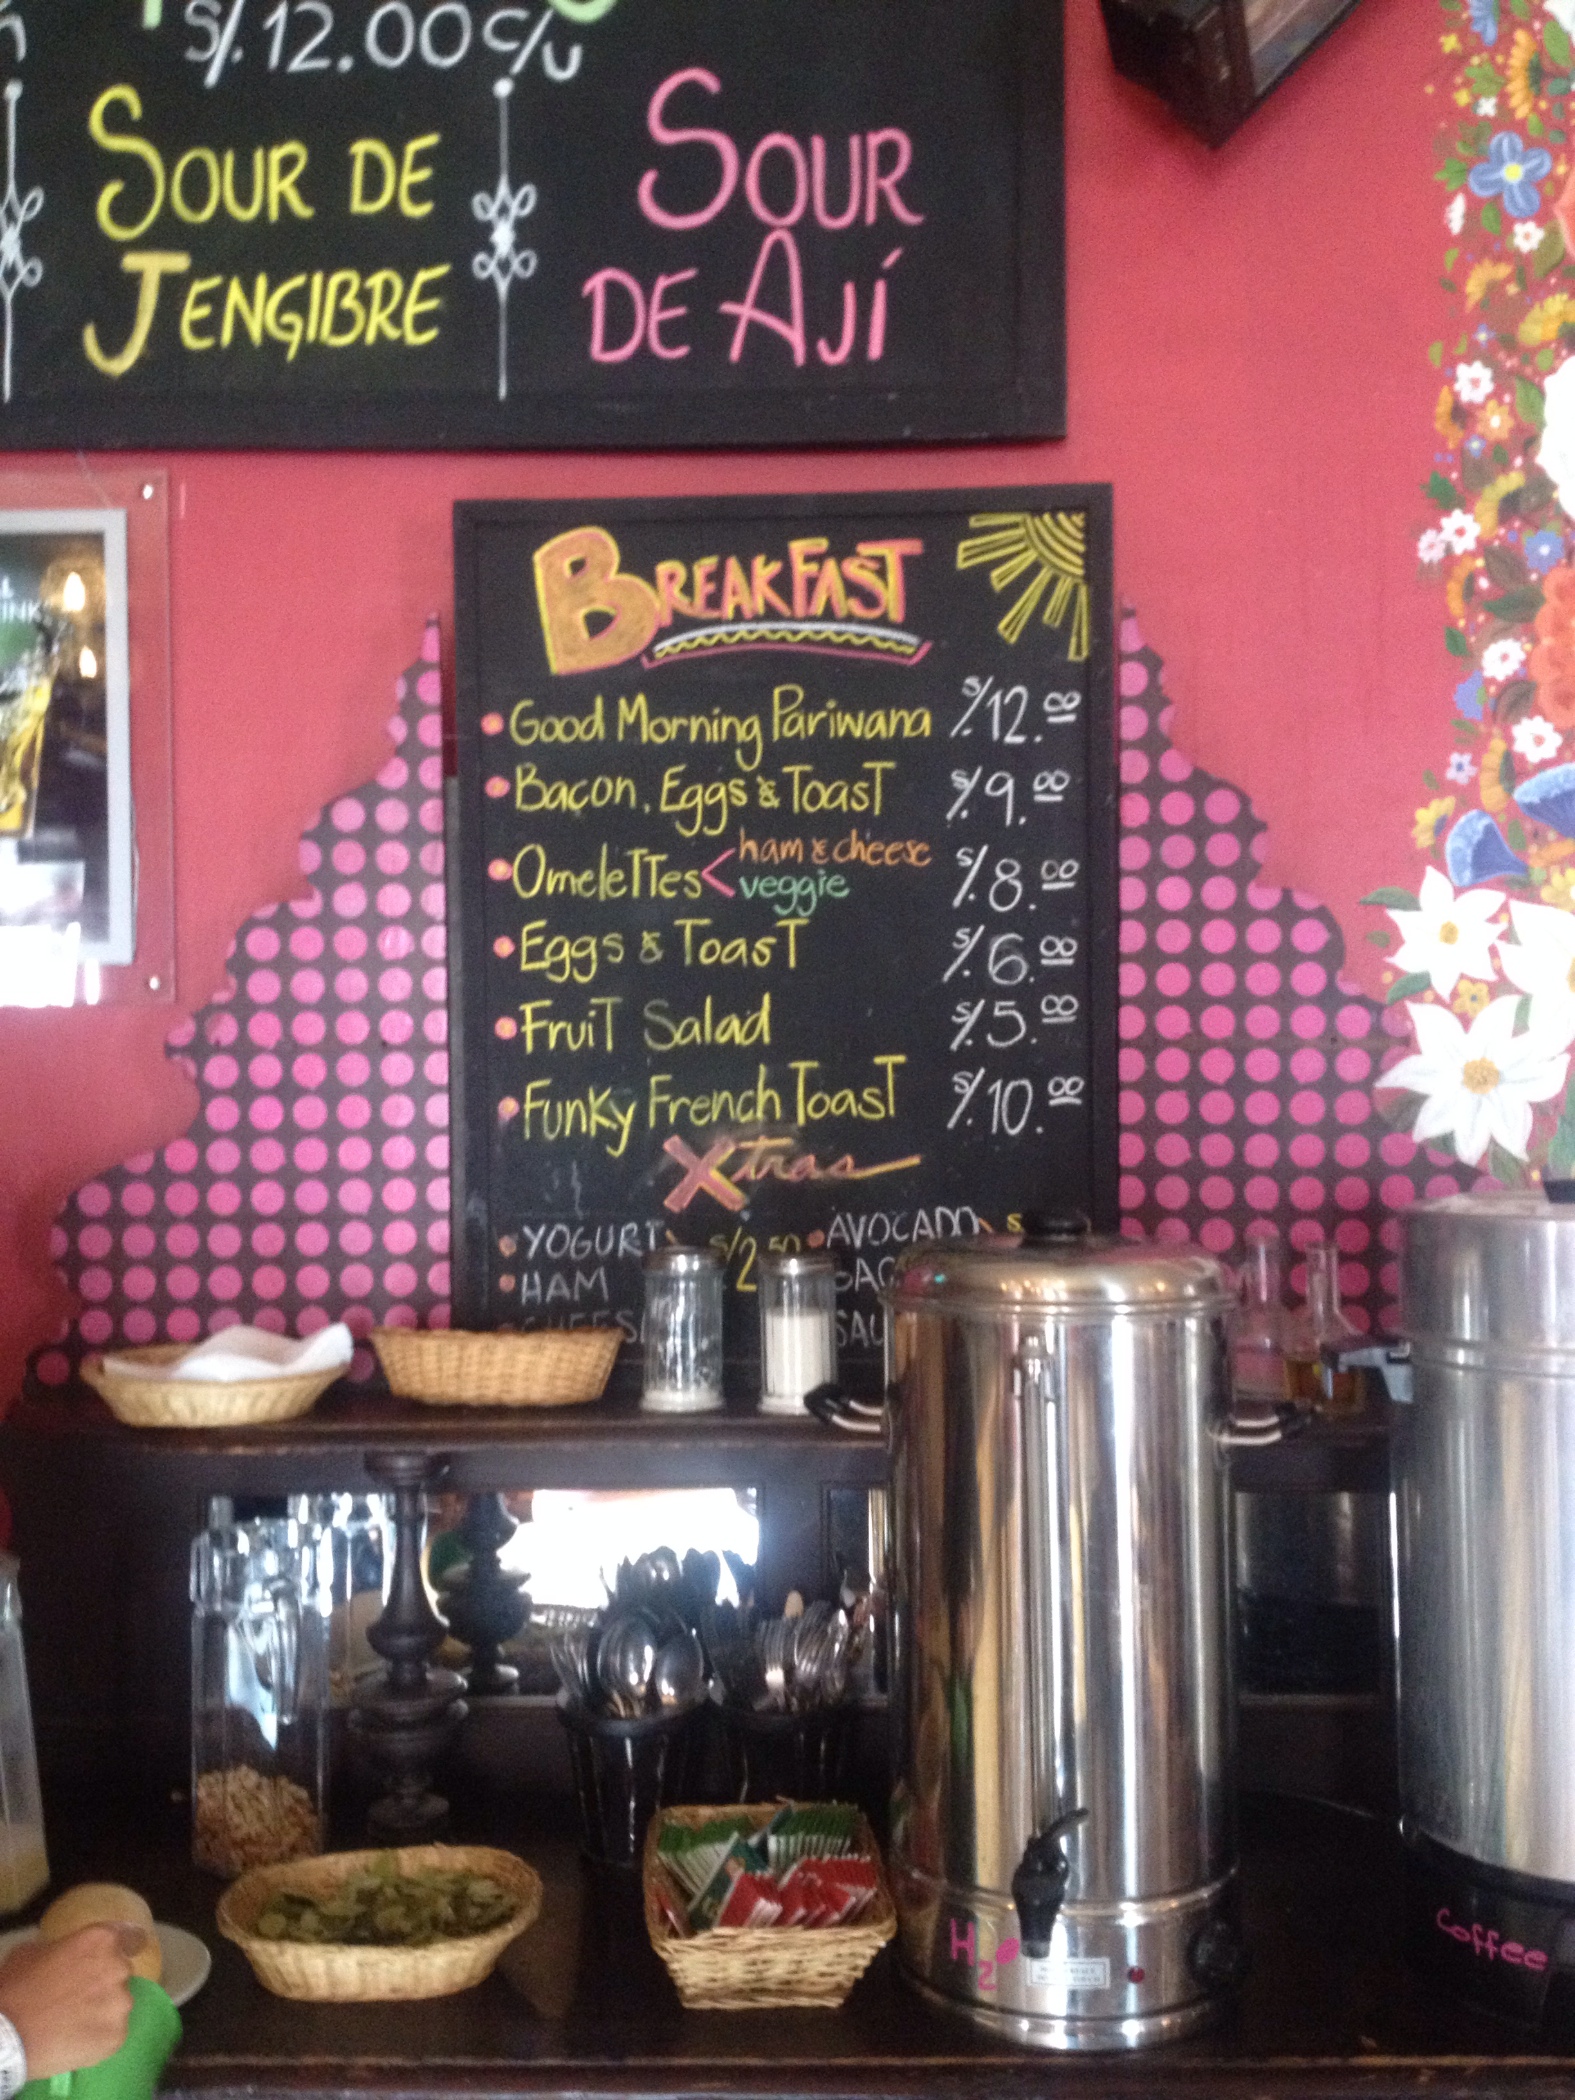 S/. 12.00 c/u
SOUR DE
JENGIBRE
SOUR
DE AJÍ
BREAKFAST
Good Morning Pariwana S/. 12.00
Bacon, Eggs & Toast S/. 9.00
Omelettes < ham & cheese
veggie S/. 8.00
Eggs & Toast S/. 6.00
Fruit Salad S/. 5.00
Funky French Toast S/. 10.00
Xtras
YOGURT S/2.50 AVOCADO S
HAM
H2O
Coffee